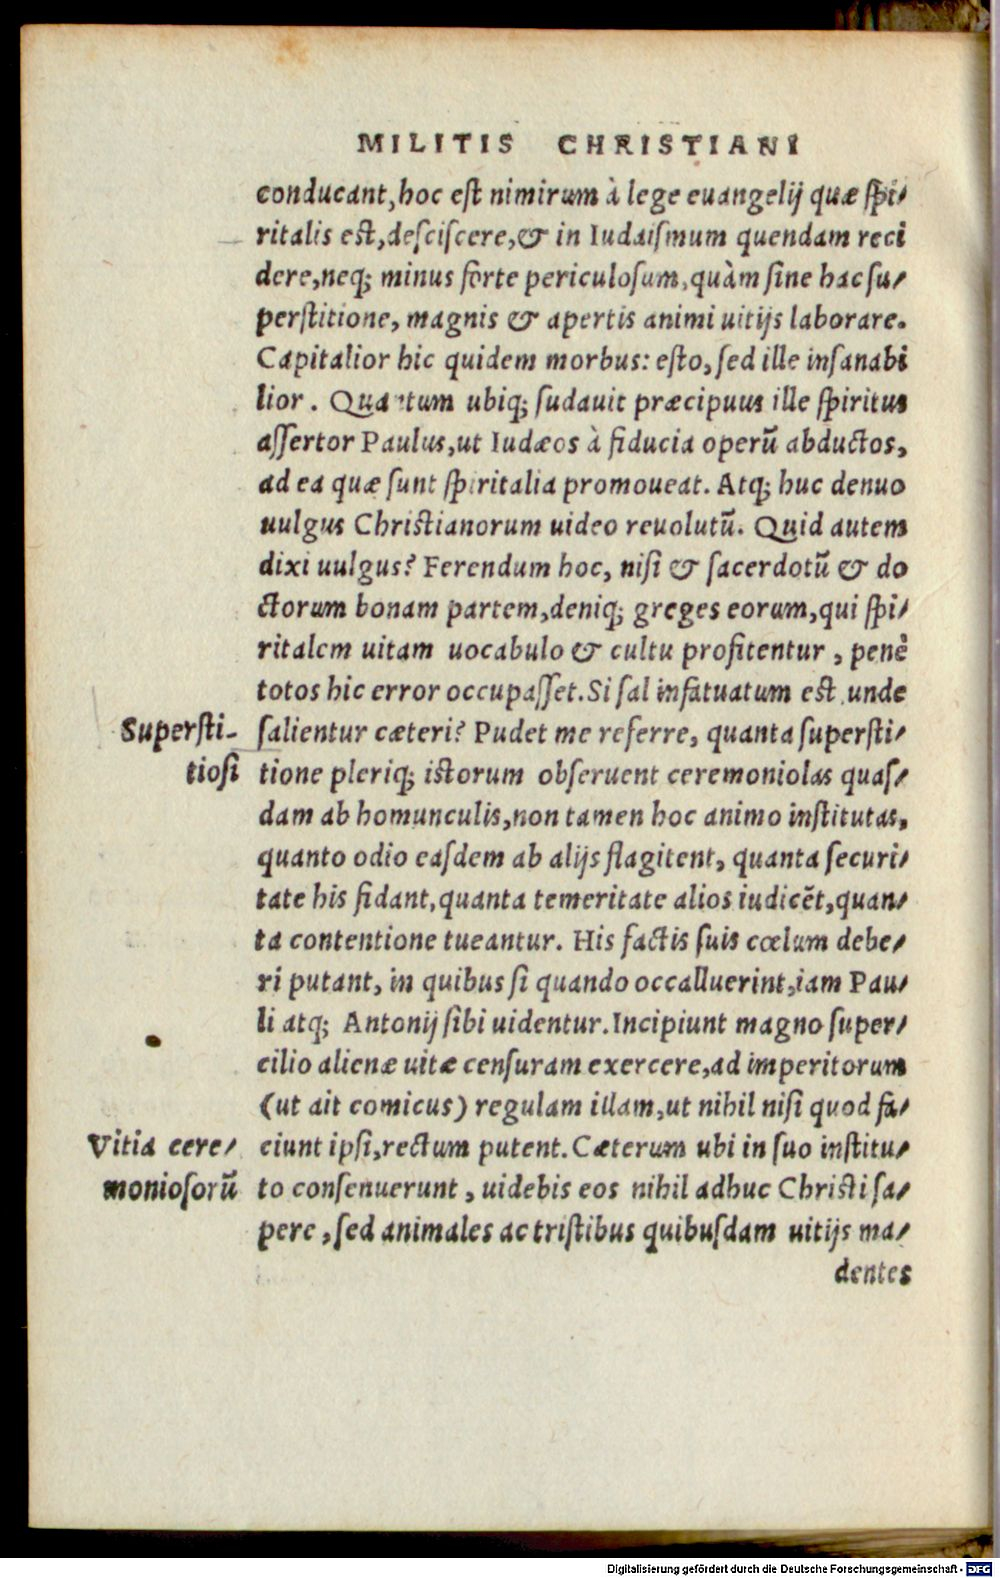 MILITIS CHRISTIANI
conducant, hoc est nimirum à lege euangelij quæ spi/
ritalis est, desciscere, & in Iudaismum quendam reci
dere, neq; minus forte periculosum, quàm sine hac su/
perstitione, magnis & apertis animi uitijs laborare.
Capitalior hic quidem morbus: esto, sed ille insanabi
lior. Quantum ubiq; sudauit præcipuus ille spiritus
assertor Paulus, ut Iudæos à fiducia operū abductos,
ad ea quæ sunt spiritalia promoueat. Atq; huc denuo
uulgus Christianorum uideo reuolutū. Quid autem
dixi uulgus? Ferendum hoc, nisi & sacerdotū & do
ctorum bonam partem, deniq; greges eorum, qui spi/
ritalem uitam uocabulo & cultu profitentur, penè
totos hic error occupasset. Si sal infatuatum est unde
Supersti-
tiosi
salientur cæteri? Pudet me referre, quanta supersti/
tione pleriq; istorum obseruent ceremoniolas quas/
dam ab homunculis, non tamen hoc animo institutas,
quanto odio easdem ab alijs flagitent, quanta securi/
tate his fidant, quanta temeritate alios iudicēt, quan/
ta contentione tueantur. His factis suis cœlum debe/
ri putant, in quibus si quando occalluerint, iam Pau/
li atq; Antonij sibi uidentur. Incipiunt magno super/
cilio alienæ uitæ censuram exercere, ad imperitorum
(ut ait comicus) regulam illam, ut nihil nisi quod fa/
Vitia cere/
moniosorū
ciunt ipsi, rectum putent. Cæterum ubi in suo institu/
to consenuerunt, uidebis eos nihil adhuc Christi sa/
pere, sed animales ac tristibus quibusdam uitijs ma/
dentes
Digitalisierung gefördert durch die Deutsche Forschungsgemeinschaft - DFG